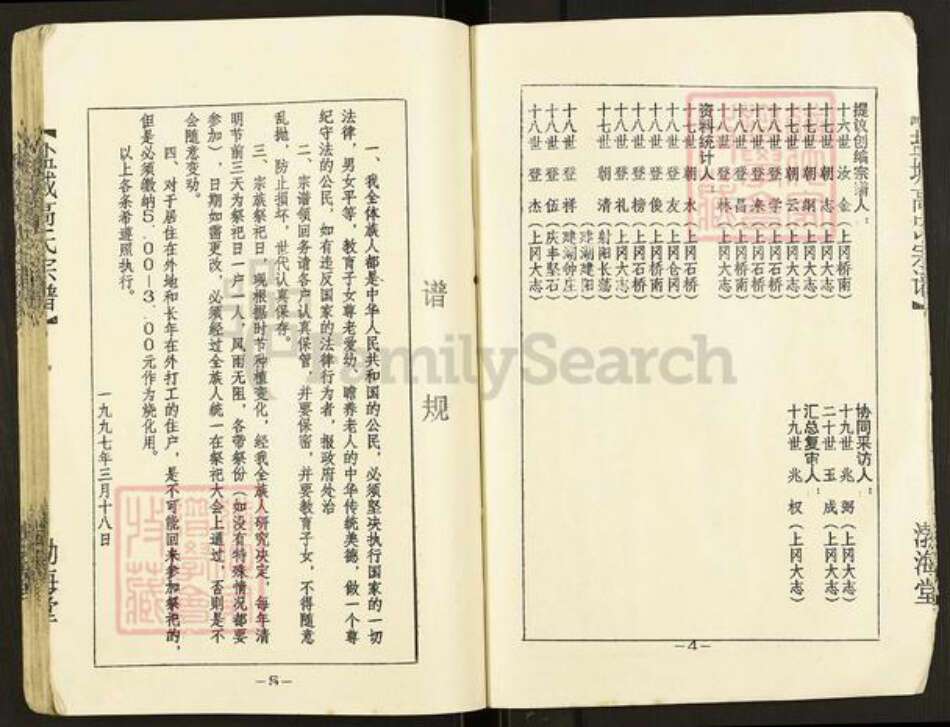 提议创编宗谱人：
十六世 汝 金（上冈桥南）
十七世 朝 志（上冈大志）
十七世 朝 纲（上冈大志）
十七世 朝 云（上冈大志）
十八世 登 学（上冈石桥）
十八世 登 来（上冈石桥）
十八世 登 昌（上冈桥南）
十八世 登 林（上冈大志）
资料统计人：
十七世 朝 水（上冈石桥）
十八世 登 友（上冈仓冈）
十八世 登 俊（上冈桥南）
十八世 登 榜（上冈石桥）
十八世 登 礼（上冈大志）
十七世 朝 清（射阳长荡）
（建湖建阳）
十八世 登 祥（建湖钟庄）
十八世 登 伍（庆丰聚石）
十八世 登 杰（上冈大志）
协同采访人：
十九世 兆 弼（上冈大志）
二十世 玉 成（上冈大志）
汇总复审人：
十九世 兆 权（上冈大志）
渤海堂
—4—
谱 规
一、我全体族人都是中华人民共和国的公民，必须坚决执行国家的一切
法律，男女平等，教育子女尊老爱幼、赡养老人的中华传统美德，做一个尊
纪守法的公民，如有违反国家的法律行为者，报政府处治
二、宗谱领回务请各户认真保管，并要保密，并要教育子女，不得随意
乱抛，防止损坏，世代认真保存。
三、宗族祭祀日，现根据时节种植变化，经我全族人研究决定，每年清
明节前三天为祭祀日一户一人，风雨无阻，各带祭份（如没有特殊情况都要
参加），日期如需更改，必须经过全族人统一在祭祀大会上通过，否则是不
会随意变动。
四、对于居住在外地和长年在外打工的住户，是不可能回来参加祭祀的，
但是必须缴纳5.00—3.00元作为烧化用。
以上各条希遵照执行。
一九九七年三月十八日
FamilySearch